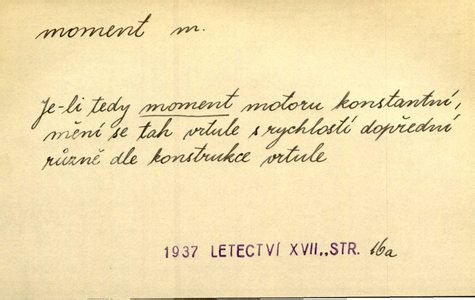 moment m.
Je-li tedy moment motoru konstantní,
mění se tah vrtule s rychlostí dopřední
různě dle konstrukce vrtule
1937 LETECTVÍ XVII., STR. 16a